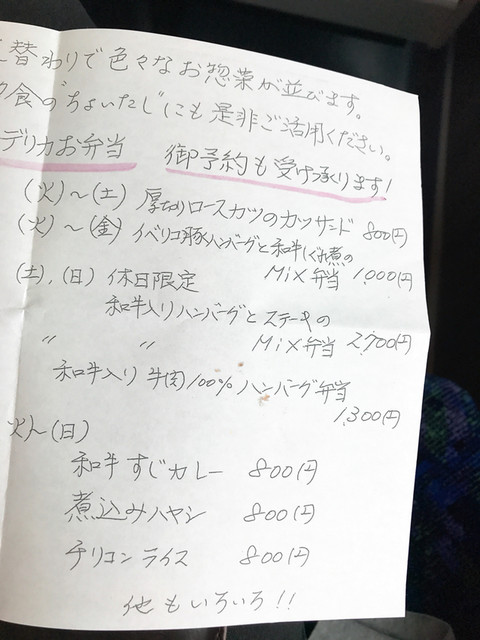 替わりで色々なお惣菜が並びます。
食の"ちょいたし"にも是非ご活用ください。
デリカお弁当 御予約も受け承ります!
(火)~(土) 厚切りロースカツのカツサンド 800円
(火)~(金) イベリコ豚ハンバーグと和牛しぐれ煮の
MiX弁当 1,000円
(土),(日) 休日限定
和牛入りハンバーグとステーキの
〃 〃 MiX弁当 2,700円
和牛入り 牛肉100% ハンバーグ弁当
1,300円
火~(日)
和牛すじカレー 800円
煮込みハヤシ 800円
チリコンライス 800円
他もいろいろ!!